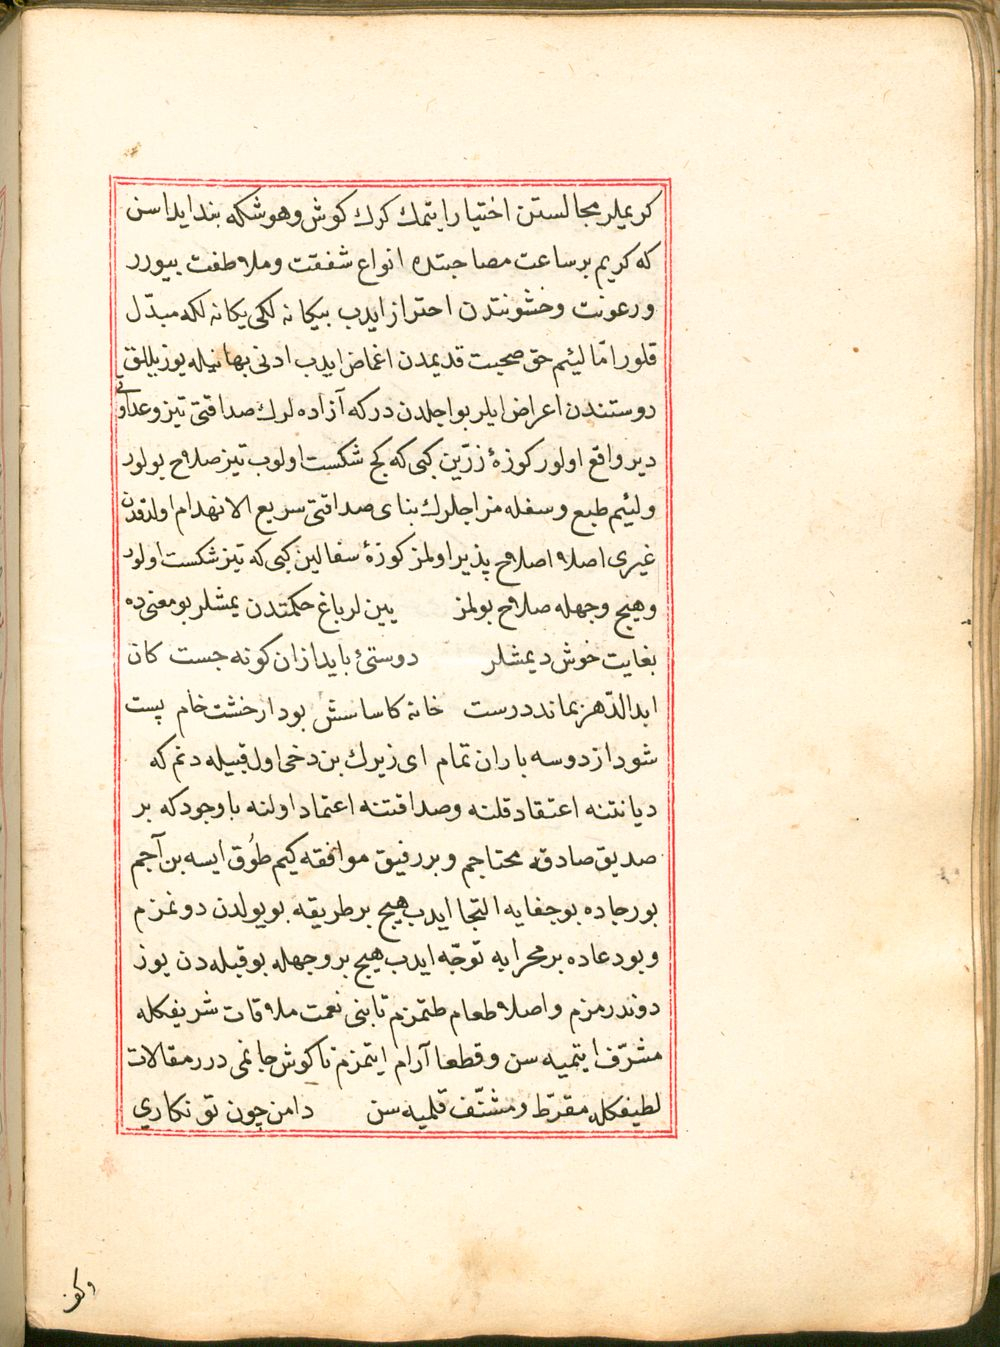 كريملر مجالستن اختيار ايتمك كرك كوش وهوشكه بند ايداسن
كه كريم بر ساعت مصاحبتده انواع شفقت وملاطفت بيورر
ورعونت وخشونتدن احتراز ايدب بيكانه لكى يكانه لكه مبدّل
قلور امّا لئيم حق صحبت قديمدن اغماض ايدب ادنى بهانيله يوز ييللق
دوستندن اعراض ايلر بو اجلدن دركه آزاده لرك صداقتى تيز وعداوتى
دير واقع اولور كوزهٔ زرّين كبى كه كج شكست اولوب تيز صلاح بولور
ولئيم طبع وسفله مزاجلرك بناى صداقتى سريع الانهدام اولدوقدن
غيرى اصلا اصلاح پذير اولمز كوزهٔ سفالين كبى كه تيز شكست اولور
وهيچ وجهله صلاح بولمز يمين لر باغ حكمتدن يمشلر بو معنى ده
بغايت خوش ديمشلر دوستىٔ بايد ازان كونه جست كان
ابد الدّهر بماند درست خانه كاساسش بود از خشت خام پست
شود از دوسه باران تمام اى زيرك بن دخى اول قبيله دنم كه
ديانتنه اعتقاد قلنه وصداقتنه اعتماد اولنه باوجودكه بر
صديق صادقه محتاجم وبر رفيق موافقه كيم طوُق ايسه بن آجم
بو رجاده بو جفايه التجا ايدب هيچ بر طريقه بو يولدن دونمزم
وبو دعاده بر محرابه توجّه ايدب هيچ بر وجهله بو قبله دن يوز
دوندرمزم واصلا طعام طتمزم تا بنى نعمت ملاقات شريفكله
مشرّف ايتميه سن وقطعا آرام ايتمزم تا كوش جانمى درر مقالات
لطيفكله مقرّط ومشنّف قلميه سن دامن چون تو نكارى
وكفـ